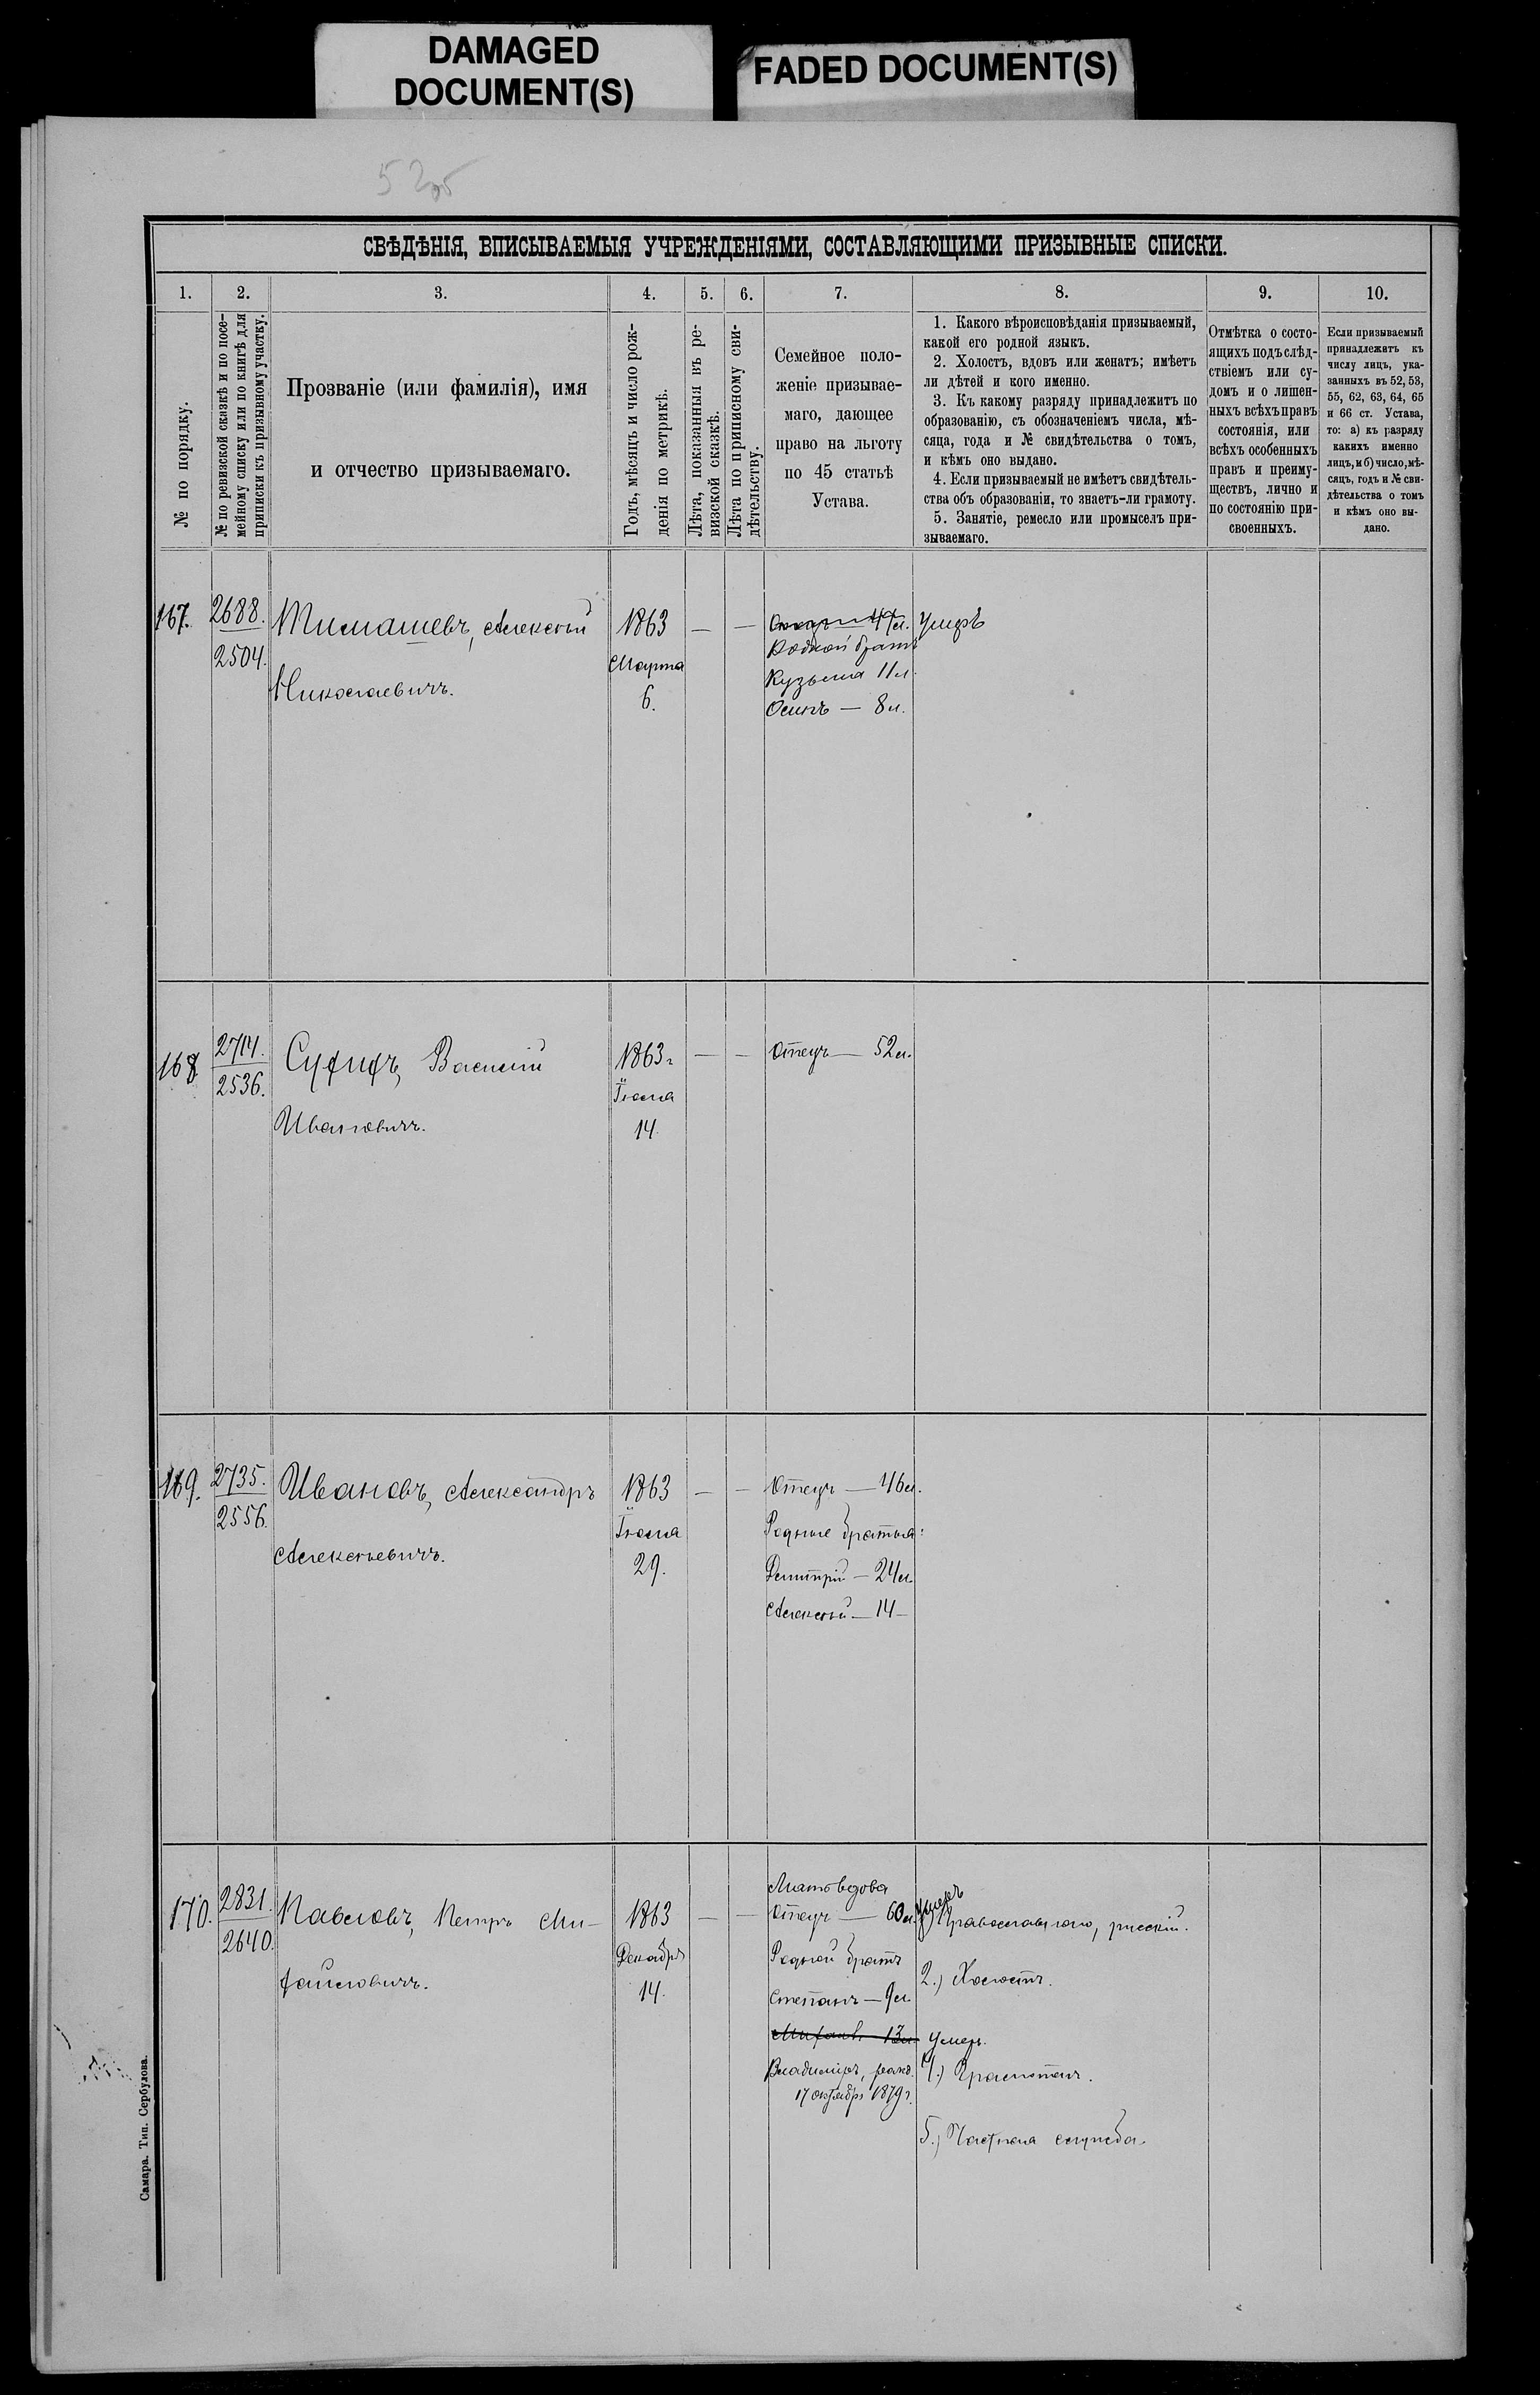 DAMAGED
DOCUMENT(S)
FADED DOCUMENT(S)
СВѢДѢНІЯ, ВПИСЫВАЕМЫЯ УЧРЕЖДЕНІЯМИ, СОСТАВЛЯЮЩИМИ ПРИЗЫВНЫЕ СПИСКИ.
1. 2. 3. 4. 5. 6. 7. 8. 9. 10.
№ по порядку.
№ по ревизской сказкѣ и по посе-
мейному списку или по книгѣ для
приписки къ призывному участку.
Прозваніе (или фамилія), имя
и отчество призываемаго.
Годъ, мѣсяцъ и число рож-
денія по метрикѣ.
Лѣта, показанныя въ ре-
визской сказкѣ.
Лѣта по приписному сви-
дѣтельству.
Семейное поло-
женіе призывае-
маго, дающее
право на льготу
по 45 статьѣ
Устава.
1. Какого вѣроисповѣданія призываемый,
какой его родной языкъ.
2. Холостъ, вдовъ или женатъ; имѣетъ
ли дѣтей и кого именно.
3. Къ какому разряду принадлежитъ по
образованію, съ обозначеніемъ числа, мѣ-
сяца, года и № свидѣтельства о томъ,
и кѣмъ оно выдано.
4. Если призываемый не имѣетъ свидѣтель-
ства объ образованіи, то знаетъ-ли грамоту.
5. Занятіе, ремесло или промыселъ при-
зываемаго.
Отмѣтка о состо-
ящихъ подъ слѣд-
ствіемъ или су-
домъ и о лишен-
ныхъ всѣхъ правъ
состоянія, или
всѣхъ особенныхъ
правъ и преиму-
ществъ, лично и
по состоянію при-
своенныхъ.
Если призываемый
принадлежитъ къ
числу лицъ, ука-
занныхъ въ 52, 53,
55, 62, 63, 64, 65
и 66 ст. Устава,
то: а) къ разряду
какихъ именно
лицъ, и б) число, мѣ-
сяцъ, годъ и № сви-
дѣтельства о томъ
и кѣмъ оно вы-
дано.
167. 2688. Тимашевъ, Алексѣй 1863 — — Отецъ — 47 л. Умеръ
2504. Николаевичъ. Марта 6.
Родной братъ
Кузьма 11 л.
Осипъ — 8 л.
168 2714. Василій 1863 г — — Отецъ — 52 л.
2536. Ивановичъ. Іюля 14.
169. 2735. Ивановъ, Александръ 1863 — — Отецъ — 46 л.
2556. Алексѣевичъ. Іюля 29.
Родные братья:
Дмитрій — 24 л
Алексѣй — 14 —
170. 2831. Павловъ, Петръ Ми- 1863 — —
2640. хайловичъ. Декабря 14.
Мать вдова
Отецъ — 60 л. Умеръ
Родной братъ
Степанъ — 9 л
13 л. Умеръ.
Владиміръ, рожд.
17 октября 1879 г.
Православнаго, русскій.
2.) Холостъ.
4.) Грамотенъ.
5.) Частная служба.
Самара. Тип. Сербулова.